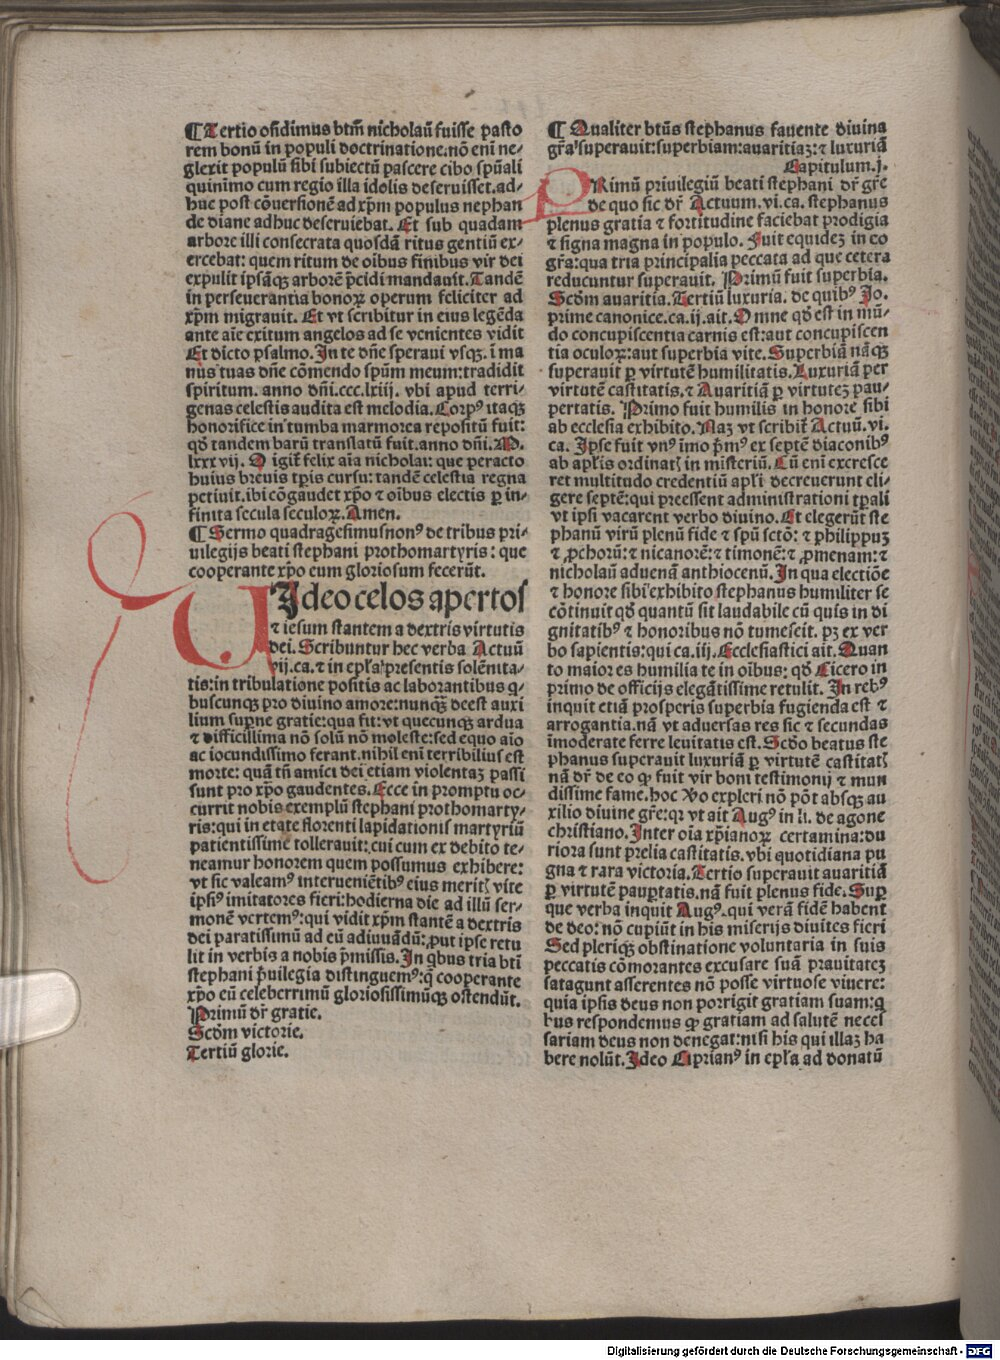 ¶ Tertio ostẽdimus btm̃ nicholaũ fuisse pasto
rem bonũ in populi doctrinatione. nõ eni ne-
glexit populũ sibi subiectũ pascere cibo spũali
quinimo cum regio illa idolis deseruisset. ad-
huc post cõuersionẽ ad xp̃m populus nephan
de diane adhuc deseruiebat. Et sub quadam
arbore illi consecrata quosdã ritus gentiũ ex-
ercebat: quem ritum de oĩbus finibus vir dei
expulit ipsãq; arborẽ p̃cidi mandauit. Tandẽ
in perseuerantia bonoꝝ operum feliciter ad
xp̃m migrauit. Et vt scribitur in eius legẽda
ante aĩe exitum angelos ad se venientes vidit
Et dicto psalmo. In te dñe speraui vsq;. ĩ ma
nus tuas dñe cõmendo spũm meum: tradidit
spiritum. anno dñi. ccc. lxiij. vbi apud terri-
genas celestis audita est melodia. Corpꝰ itaq;
honorifice in tumba marmorea repositũ fuit:
qđ tandem barũ translatũ fuit. anno dñi. M.
lxxx vij. O igit᷑ felix aĩa nicholai: que peracto
huius breuis tp̃is cursu: tandẽ celestia regna
petiuit. ibi cõgaudet xp̃o ⁊ oĩbus electis ꝑ in-
finita secula seculoꝝ. Amen.
¶ Sermo quadragesimusnonꝰ de tribus pri-
uilegijs beati stephani prothomartyris: que
cooperante xp̃o eum gloriosum fecerũt.
UIdeo celos apertos
⁊ iesum stantem a dextris virtutis
dei. Scribuntur hec verba Actuũ
vij. ca. ⁊ in ep̃la presentis solẽnita-
tis: in tribulatione positis ac laborantibus q-
buscunq; pro diuino amore: nunq̃ deest auxi
lium sup̃ne gratie: qua fit: vt quecunq; ardua
⁊ difficillima nõ solũ nõ moleste: sed equo aĩo
ac iocundissimo ferant. nihil eni terribilius est
morte: quã tñ amici dei etiam violentaz passi
sunt pro xp̃o gaudentes. Ecce in promptu oc-
currit nobis exemplũ stephani prothomarty-
ris: qui in etate florenti lapidationis martyriũ
patientissime tollerauit: cui cum ex debito te-
neamur honorem quem possumus exhibere:
vt sic valeamꝰ interueniẽtibꝰ eius meritꝭ vite
ipsiꝰ imitatores fieri: hodierna die ad illũ ser-
monẽ vertemꝰ: qui vidit xp̃m stantẽ a dextris
dei paratissimũ ad eũ adiuuãdũ: ꝓut ipse retu
lit in verbis a nobis p̃missis. In q̃bus tria bti
stephani p̃uilegia distinguemꝰ: q̃ cooperante
xp̃o eũ celeberrimũ gloriosissimũq; ostendũt.
Primũ dr̃ gratie.
Scđm victorie.
Tertiũ glorie.
¶ Qualiter btũs stephanus fauente diuina
gr̃a superauit: superbiam: auaritiaz: ⁊ luxuriã
Capitulum. j.
PRimũ priuilegiũ beati stephani dr̃ gr̃e
de quo sic dr̃ Actuum. vi. ca. stephanus
plenus gratia ⁊ fortitudine faciebat prodigia
⁊ signa magna in populo. Fuit equidez in eo
gr̃a: qua tria principalia peccata ad que cetera
reducuntur superauit. Primũ fuit superbia.
Scđm auaritia. Tertiũ luxuria. de quibꝰ Jo.
prime canonice. ca. ij. ait. Omne qđ est in mũ-
do concupiscentia carnis est: aut concupiscen
tia oculoꝝ: aut superbia vite. Superbiã nãq;
superauit ꝑ virtutẽ humilitatis. Luxuriã per
virtutẽ castitatis. ⁊ Auaritiã ꝑ virtutez pau-
pertatis. Primo fuit humilis in honore sibi
ab ecclesia exhibito. Naz vt scribit᷑ Actuũ. vi.
ca. Ipse fuit vnꝰ imo p̃mꝰ ex septẽ diaconibꝰ
ab ap̃lis ordinatꝭ in misteriũ. Cũ eni excresce
ret multitudo credentiũ ap̃li decreuerunt eli-
gere septẽ: qui preessent administrationi tp̃ali
vt ipsi vacarent verbo diuino. Et elegerũt ste
phanũ virũ plenũ fide ⁊ spũ sctõ: ⁊ philippuz
⁊ ꝓchorũ: ⁊ nicanorẽ: ⁊ timonẽ: ⁊ ꝓmenam: ⁊
nicholaũ aduenã anthiocenũ. In qua electiõe
⁊ honore sibi exhibito stephanus humiliter se
cõtinuit qđ quantũ sit laudabile cũ quis in di
gnitatibꝰ ⁊ honoribus nõ tumescit. pz ex ver
bo sapientis: qui ca. iij. Ecclesiastici ait. Quan
to maior es humilia te in oĩbus: qđ Cicero in
primo de officijs elegãtissime retulit. In rebꝰ
inquit etiã prosperis superbia fugienda est ⁊
arrogantia. nã vt aduersas res sic ⁊ secundas
imoderate ferre leuitatis est. Scđo beatus ste
phanus superauit luxuriã ꝑ virtutẽ castitatꝭ
nã dr̃ de eo ꝙ fuit vir boni testimonij ⁊ mun
dissime fame. hoc ꝟo expleri nõ põt absq; au
xilio diuine gr̃e: qꝛ vt ait Augꝰ in li. de agone
christiano. Inter oĩa xp̃ianoꝝ certamina: du
riora sunt prelia castitatis. vbi quotidiana pu
gna ⁊ rara victoria. Tertio superauit auaritiã
ꝑ virtutẽ pauꝑtatis. nã fuit plenus fide. Suꝑ
que verba inquit Augꝰ. qui verã fidẽ habent
de deo: nõ cupiũt in his miserijs diuites fieri
Sed pleriq; obstinatione voluntaria in suis
peccatis cõmorantes excusare suã prauitatez
satagunt asserentes nõ posse virtuose viuere:
quia ipsis deus non porrigit gratiam suam: q
bus respondemus ꝙ gratiam ad salutẽ neces
sariam deus non denegat: nisi his qui illaz ha
bere nolũt. Ideo Ciprianꝰ in ep̃la ad donatũ
Digitalisierung gefördert durch die Deutsche Forschungsgemeinschaft - DFG